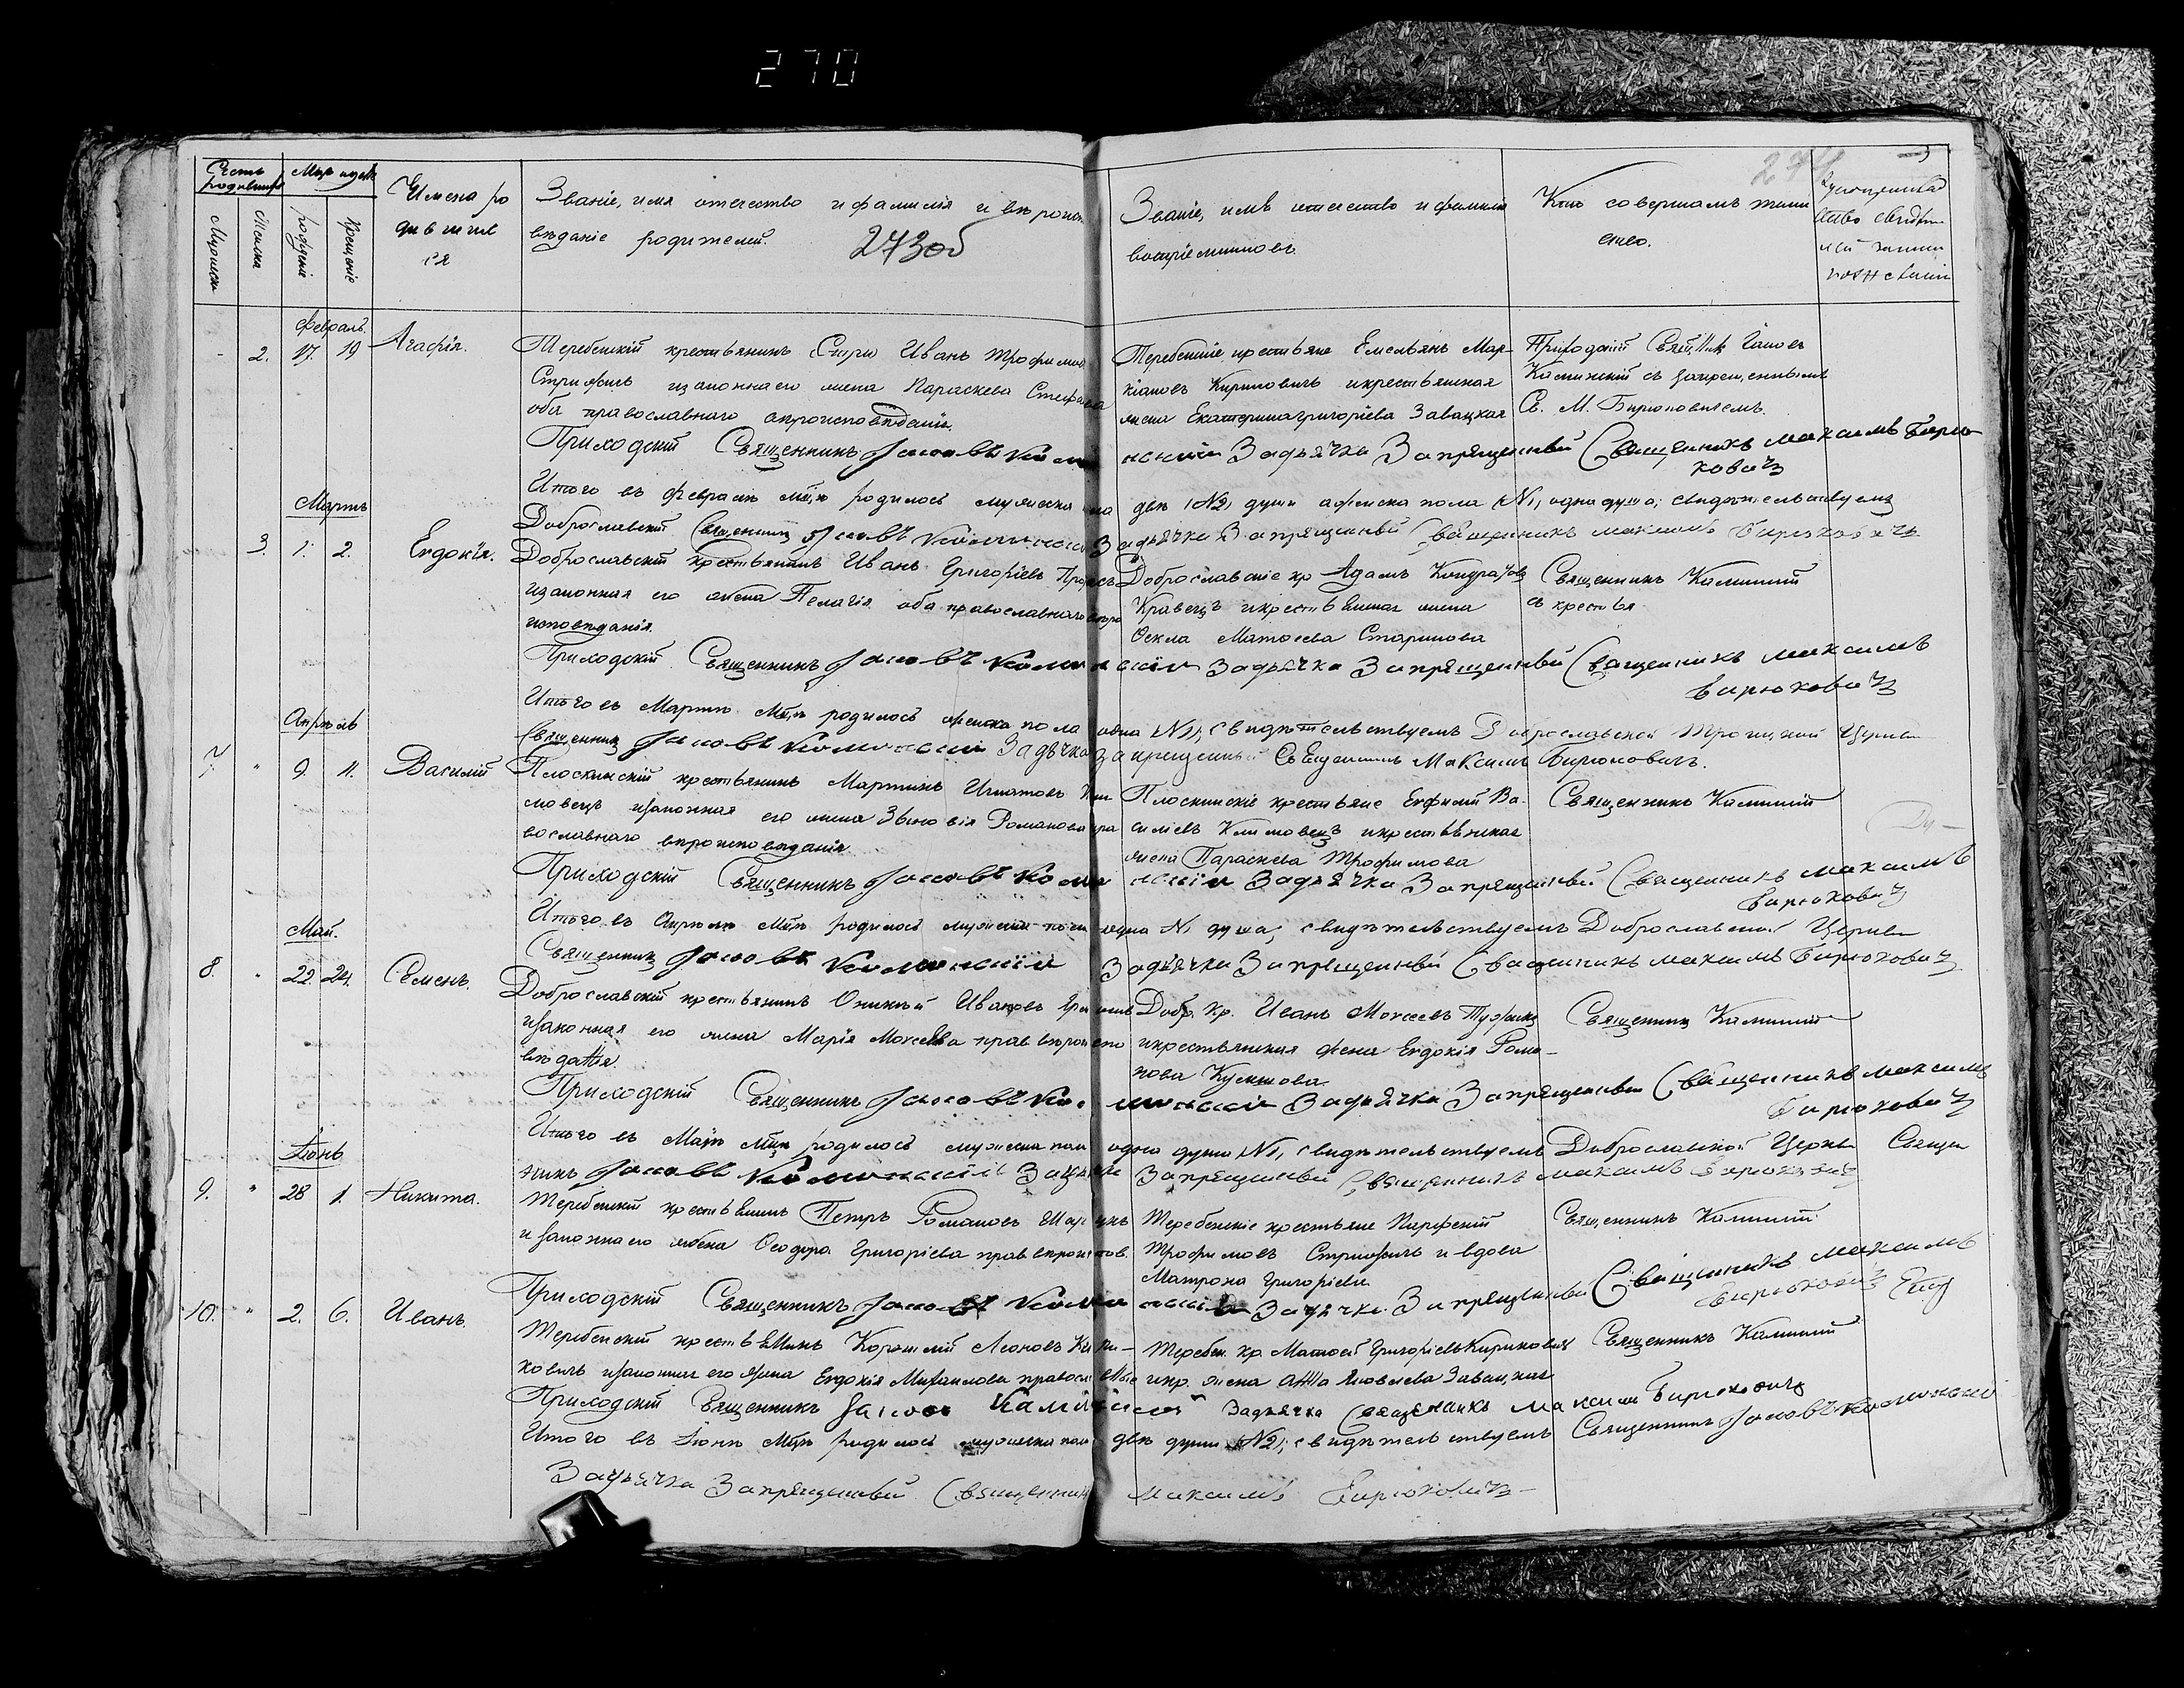 270
Счетъ родившихся
Мужеска
Женска
Мцъ и день
рожденія
Крещенія
Имена ро
дившихъ
ся
Званіе, имя отечество и фамилія и вѣроиспо
вѣданіе родителей.
273об
Званіе, имя отечество и фамилія
воспріемниковъ.
Кто совершалъ таин
ство.
274
Февраль.
- 2. 17. 19 Агафія.
Теребенскій крестьянинъ Иванъ Трофимов
Стрижичъ изаконнаго жена Параскева Стефанова
оба православнаго вероисповѣданія.
Теребенскіе крестьяне Емельянъ Мар-
кіановъ Кириковичъ икрестьянская
жена Екатерина Григоріева Завацкая
Приходскій Свящ. Іаковъ
Каминскій съ запрещеннымъ
Св. М. Бирюковичемъ.
Приходскій Священникъ Іаковъ Каминскій Задьячка Запрященный Священникъ Максимъ Бирю
ковичъ
Итого въ Февралѣ мцѣ родилось мужеска пола двѣ №2, души а женска пола №1, одна душа; свидѣтельствуемъ
Доброславскій Священникъ Іаковъ Каминскій Задьячка Запрященный Священникъ Максимъ Бирюковичъ
Мартъ
3. 1. 2. Евдокія.
Доброславскій крестьянинъ Иванъ Григоріевъ
изаконная его жена Пелагія оба православнаго вѣро
исповѣданія.
Доброславскіе кр Адамъ Кондратовъ
Кравецъ икрестьянская жена
Ѳекла Матѳеева Старикова
Священникъ Каминскій
съ крестья
Приходскій Священникъ Іаковъ Каминскій Задьячка Запрященный Священникъ Максимъ
Бирюковичъ
Итого въ Мартѣ мцѣ родилось женска пола одна №1, свидѣтельствуемъ Доброславской Троицкой Церкви
Священникъ Іаковъ Каминскій Задьячка Запрещенный Священникъ Максимъ Бирюковичъ.
Апрѣль
7. " 9. 11. Василій
Плоскинскій крестьянинъ Мартинъ Игнатовъ Кли
мовецъ изаконная его жена Зѣновія Романова пра
вославнаго вѣроисповѣданія
Плоскинскіе крестьяне Евфимій Ва-
силіевъ Климовецъ икрестьянская
жена Параскева Трофимова
Священникъ Каминскій
Приходскій Священникъ Іаковъ Каминскій Задьячка Запрященный Священникъ Максимъ
Бирюковичъ
Итого въ Апрѣлѣ мцѣ родилось мужеска пола одна №1 душа; свидѣтельствуемъ Доброславской Церкви
Священникъ Іаковъ Каминскій Задьячка Запрещенный Священникъ Максимъ Бирюковичъ
Май.
8. " 22. 24. Семенъ.
Доброславскій крестьянинъ Оникій Ивановъ
изаконная его жена Марія Моисеева прав вѣроиспо
вѣданія.
Добр. Кр. Иванъ Моисеевъ
икрестьянская жена Евдокія Рома-
нова
Священникъ Каминскій
Приходскій Священникъ Іаковъ Каминскій Задьячка Запрященный Священникъ Максимъ
Бирюковичъ
Итого въ Маѣ мцѣ родилось мужеска пола одна душа №1, свидѣтельствуемъ Доброславской Церкви Свяще
никъ Іаковъ Каминскій Задьячка Запрященный Священникъ Максимъ Бирюковичъ
Іюнь
9. " 28 1. Никита.
Теребенскій крестьянинъ Петръ Романовъ
и законна его жена Ѳеодора Григоріева прав вѣроиспов.
Теребенскіе крестьяне Парфеній
Трофимовъ Стрижичъ и вдова
Матрона Григоріева
Священникъ Каминскій
Приходскій Священникъ Іаковъ Каминскій Задьячка Запрященный Священникъ Максимъ
Бирюковичъ
10. " 2. 6. Иванъ.
Теребенскій крестьянинъ Корнилій Леоновъ Кири-
ковичъ изаконная его жена Евдокія Михаилова православные
Теребен. кр. Матѳей Григоріевъ Кириковичъ
икр. жена Анна Яковлева Завацкая
Священникъ Каминскій
Приходскій Священникъ Іаковъ Каминскій Задьячка Священникъ Максим Бирюковичъ
Итого въ Іюнѣ мцѣ родилось мужеска пола двѣ души №2; свидѣтельствуемъ Священникъ Іаковъ Каминскій
Задьячка Запрященный Священникъ Максимъ Бирюковичъ